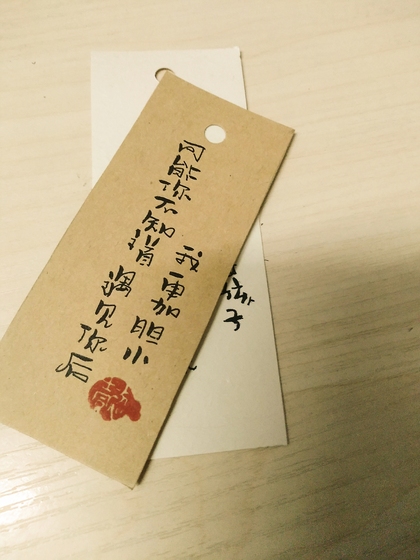 可能你不知道 遇见你后
我更加胆小